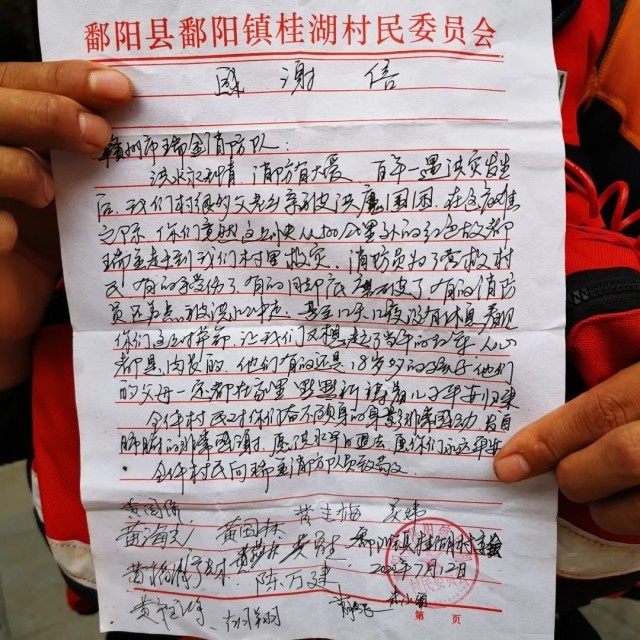 鄱阳县鄱阳镇桂湖村民委员会
感谢信
赣州市瑞金消防队：
洪水无情，消防有大爱 百年一遇洪灾发生
后，我们村很多父老乡亲被洪魔围困，在这危难
之际，你们竟然这么快从400公里外的红色故都
瑞金赶来到我们村里救灾，消防员为了营救村
民，有的受伤了，有的因脚底磨破了，有的消防
员还差点被洪水冲走，甚至几天几夜没有休息，看见
你们这样拼命，让我们又想起了当年的红军，人心
都是肉长的，他们有的还是18岁多的孩子，他们
的父母一定都在家里默默祈祷着儿子平安归来
全体村民对你们奋不顾身的身影非常感动，发自
肺腑的非常感谢，愿洪水早日退去，愿你们永远平安
全体村民向瑞金消防队员致敬
黄国保 黄生梅 吴炜
黄海 黄国 陈万建
鄱阳镇桂湖村委会
2020年7月12日
第 页